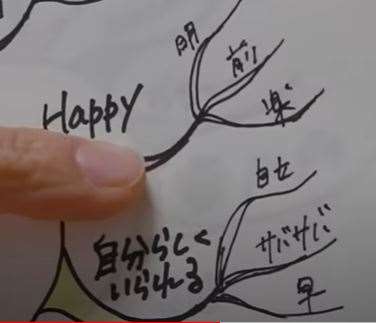 明
前
Happy
楽
サバサバ
自分らしく
いられる
早